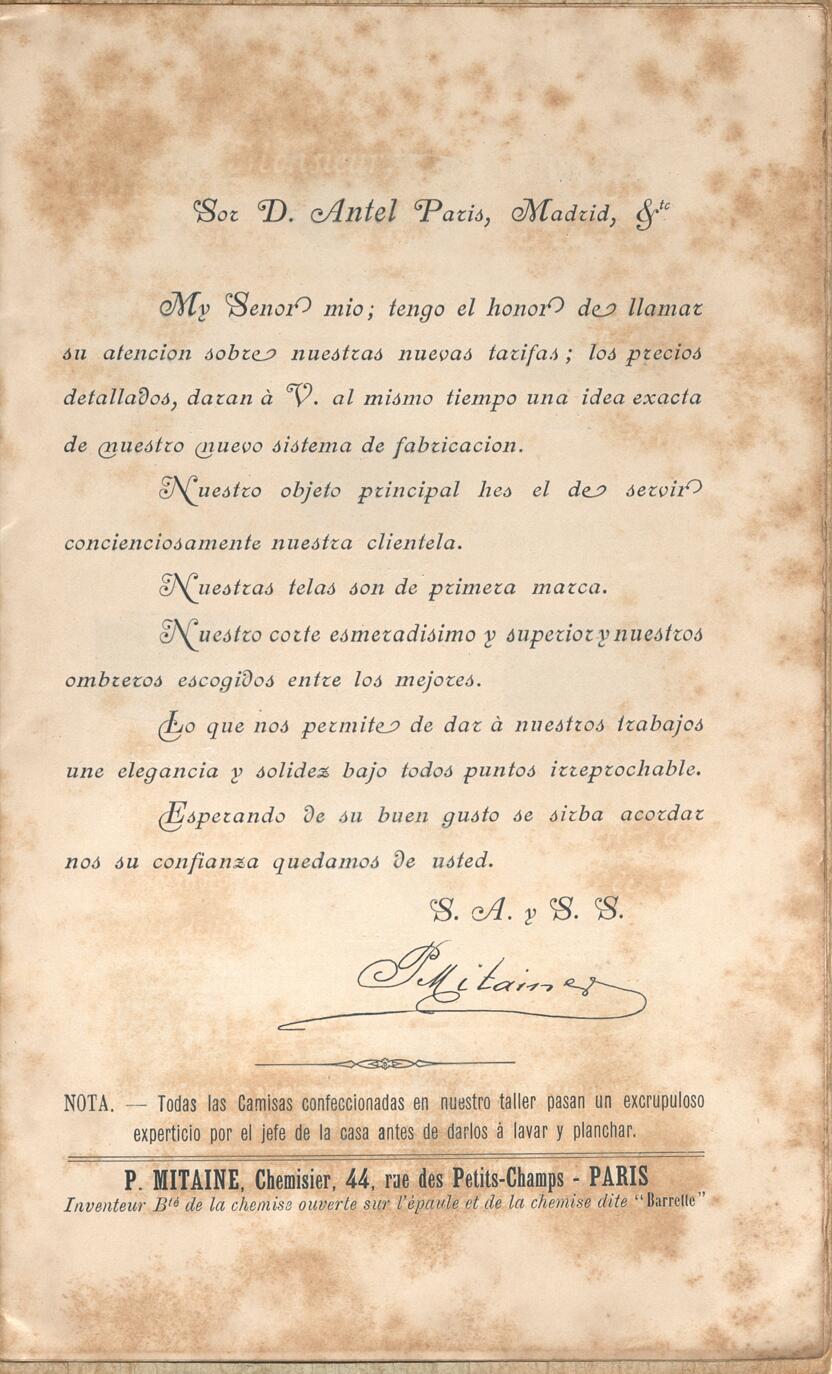 Sor D. Antel Paris, Madrid, &tc
My Senor mio; tengo el honor de llamar
su atencion sobre nuestras nuevas tarifas; los precios
detallados, daran à V. al mismo tiempo una idea exacta
de nuestro nuevo sistema de fabricacion.
Nuestro objeto principal hes el de servir
concienciosamente nuestra clientela.
Nuestras telas son de primera marca.
Nuestro corte esmeradisimo y superior y nuestros
ombreros escogidos entre los mejores.
Lo que nos permite de dar à nuestros trabajos
une elegancia y solidez bajo todos puntos irreprochable.
Esperando de su buen gusto se sirba acordar
nos su confianza quedamos de usted.
S. A. y S. S.
PMitaine
NOTA. — Todas las Camisas confeccionadas en nuestro taller pasan un excrupuloso
experticio por el jefe de la casa antes de darlos á lavar y planchar.
P. MITAINE, Chemisier, 44, rue des Petits-Champs - PARIS
Inventeur Bté de la chemise ouverte sur l'épaule et de la chemise dite "Barrette"